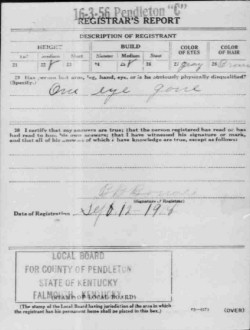 16-3-56 Pendleton "C"
REGISTRAR'S REPORT
DESCRIPTION OF REGISTRANT
HEIGHT BUILD COLOR OF EYES COLOR OF HAIR
Tall Medium Short Slender Medium Stout
21 22 8 23 24 25 8 26 27 gray 28
29 Has person lost arm, leg, hand, eye, or is he obviously physically disqualified?
(Specify).
One eye gone
30 I certify that my answers are true; that the person registered has read or has
had read to him his own answers; that I have witnessed his signature or mark,
and that all of his answers of which I have knowledge are true, except as follows:
(Signature of Registrar)
Date of Registration Sept 12 1918
LOCAL BOARD
FOR COUNTY OF PENDLETON
STATE OF KENTUCKY
FALMOUTH, KENTUCKY
(STAMP OF LOCAL BOARD)
(The stamp of the Local Board having jurisdiction of the area in which
the registrant has his permanent home shall be placed in this box.)
(OVER)